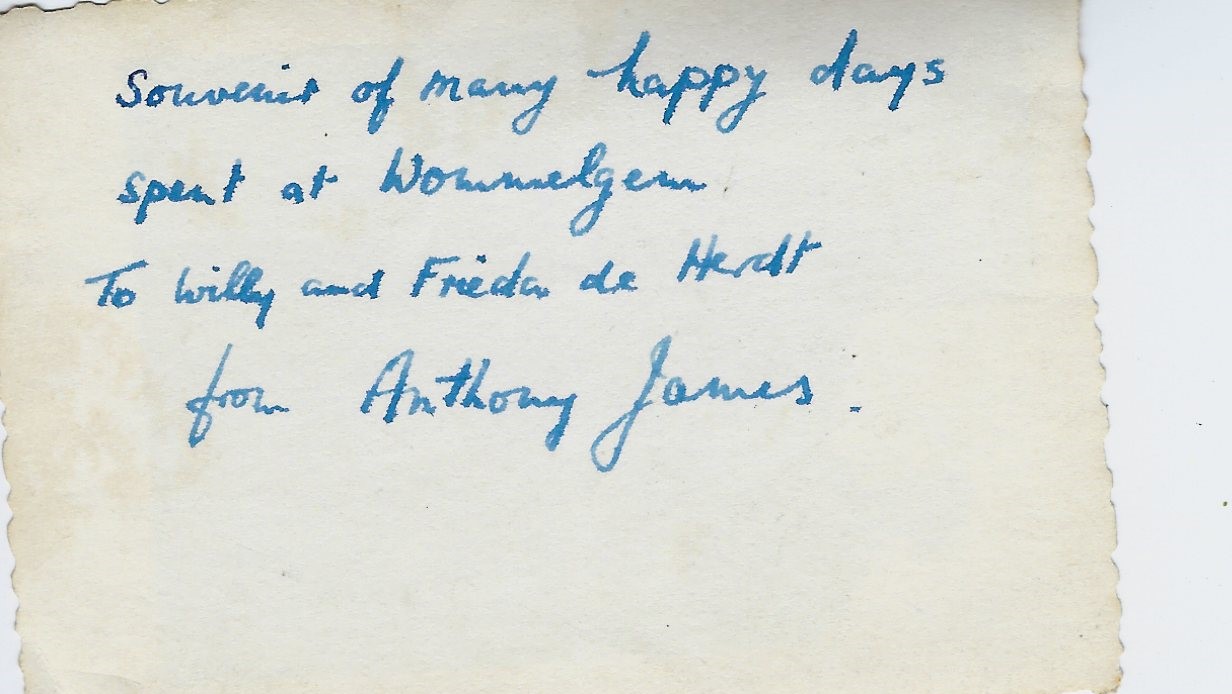 Souvenir of many happy days
spent at Wommelgem
To Willy and Frieda de Herdt
from Anthony James.